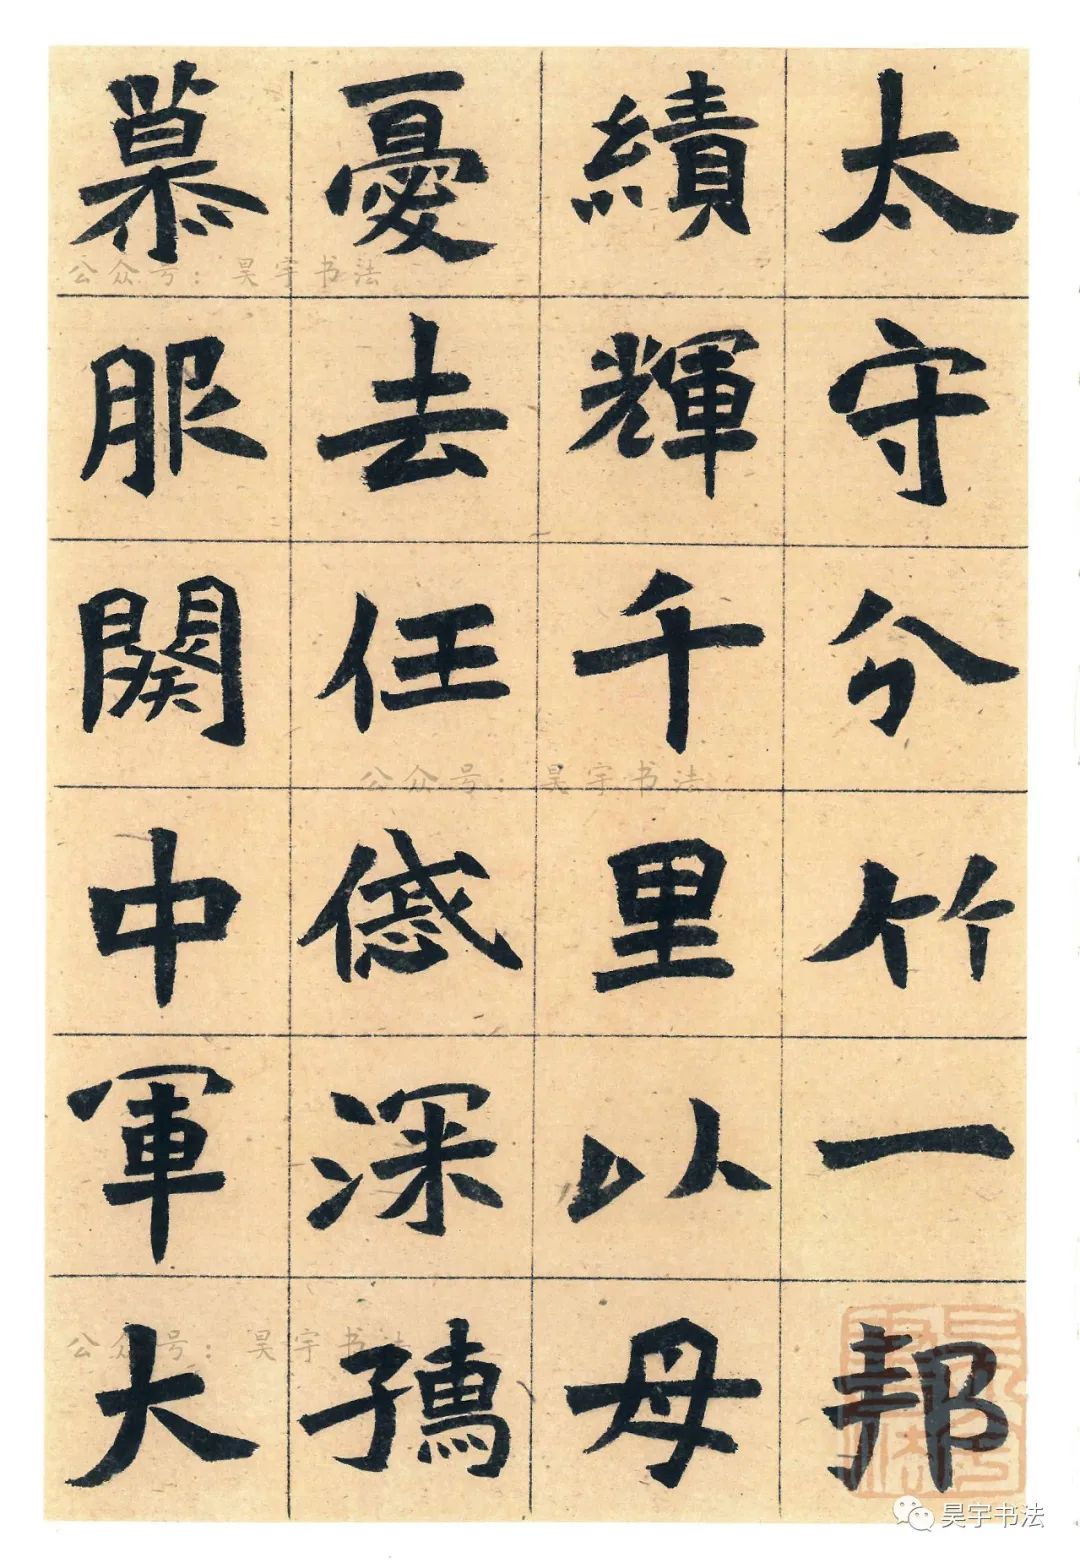 太守分竹一邦
績輝千里以母
憂去任深孺
慕服闋中軍大
公众号：昊宇书法
公众号：昊宇书法
公众号：昊宇书法
昊宇书法